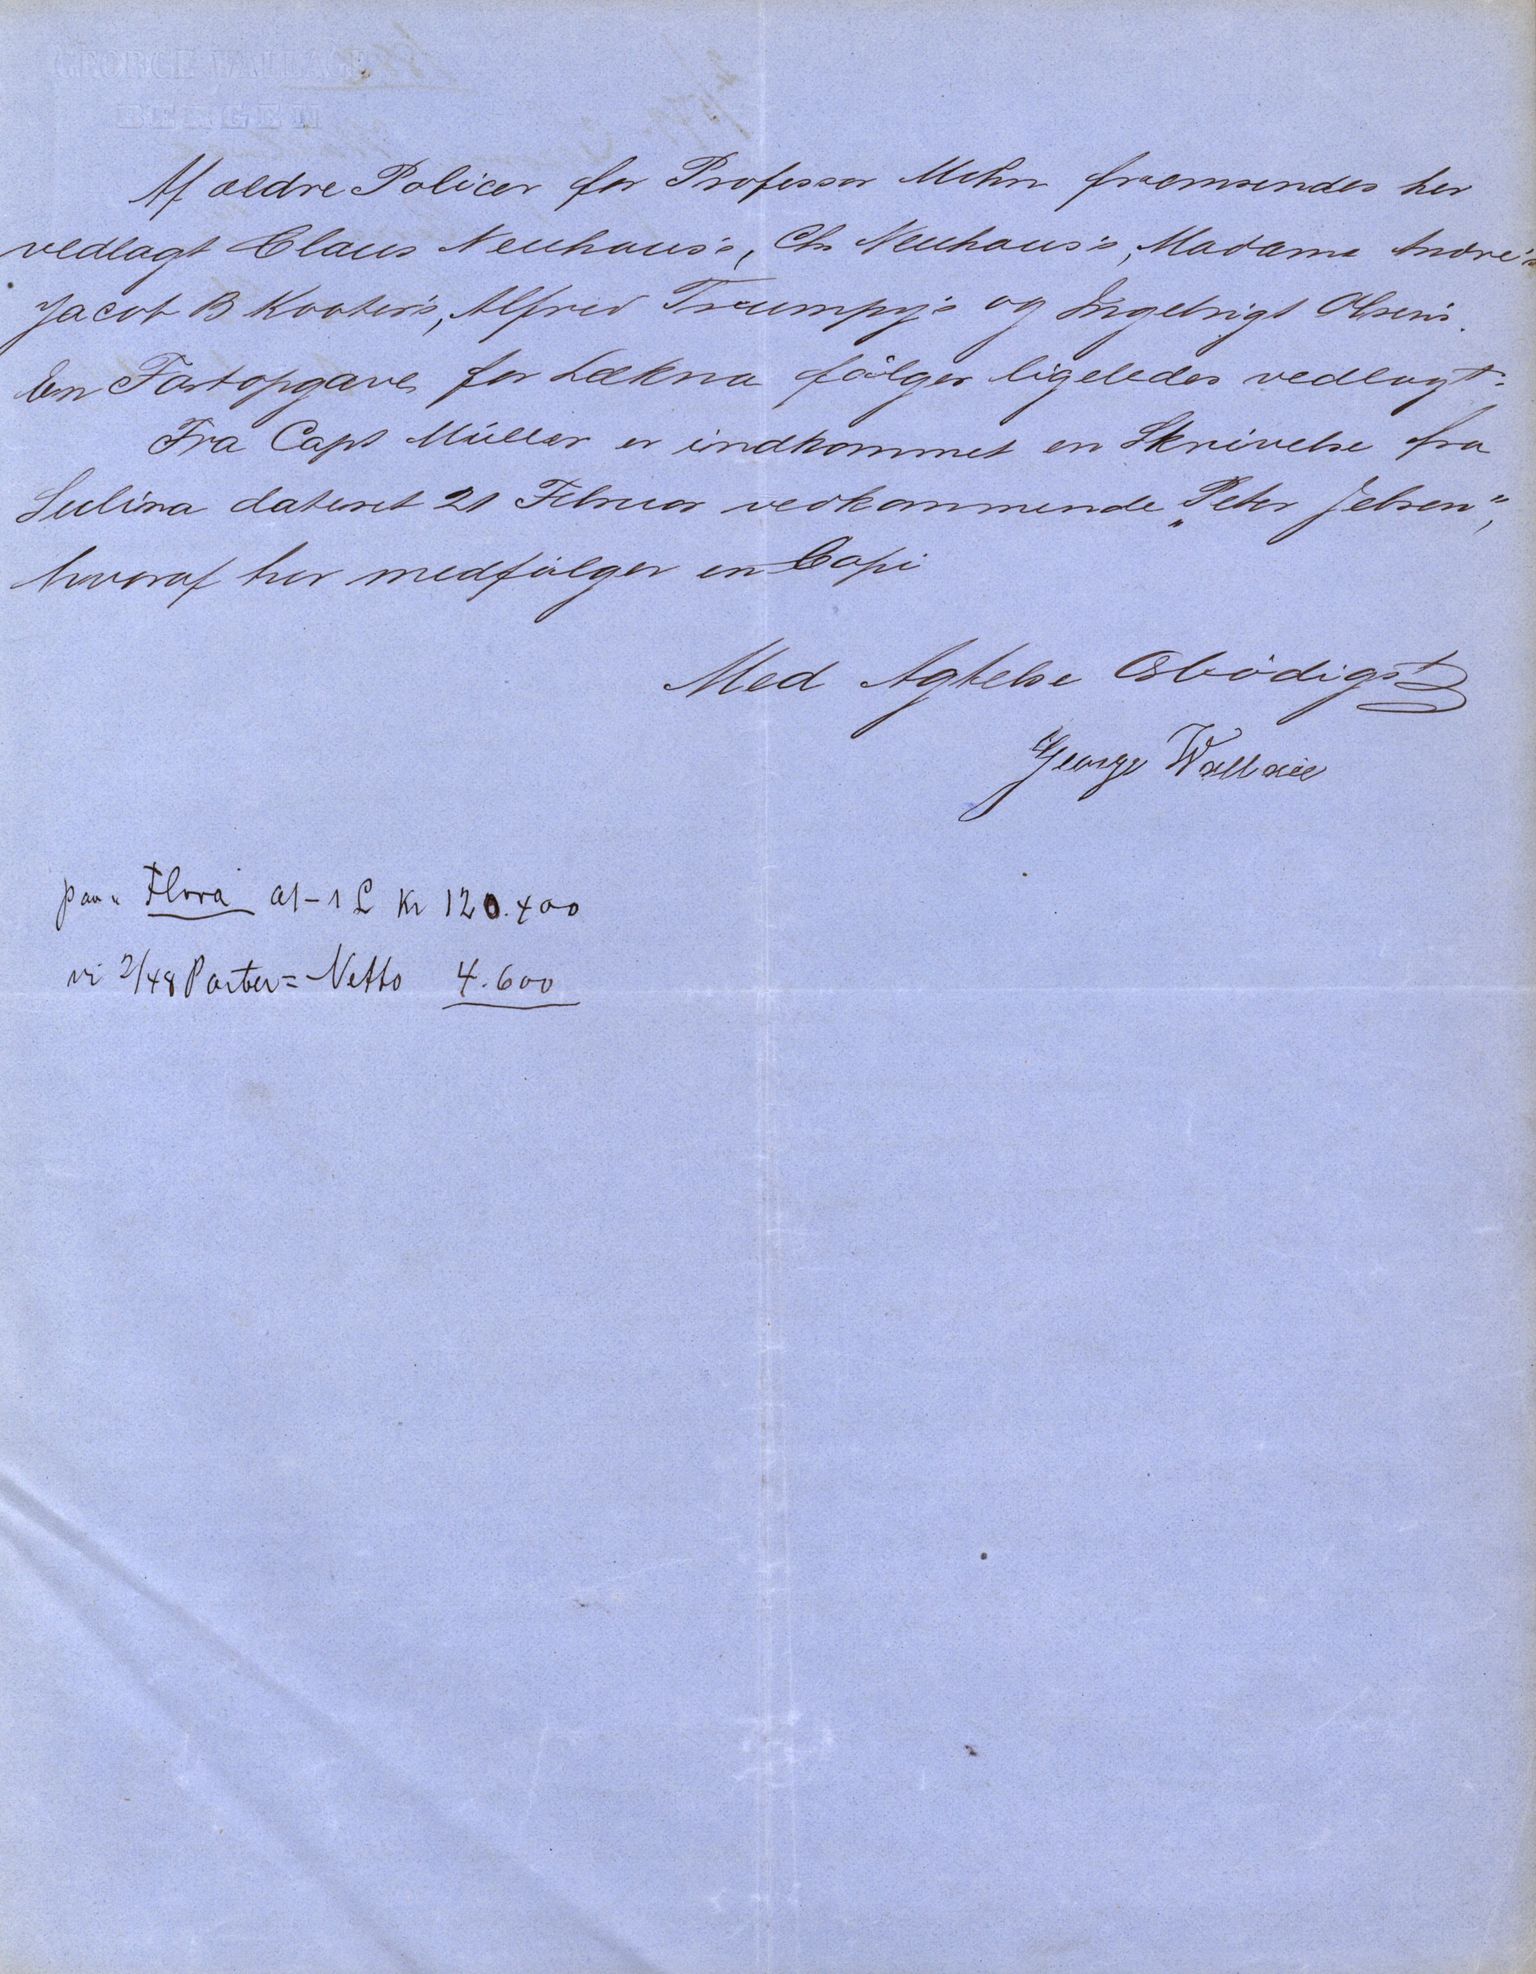 GEORGE WALLACE
BERGEN
Af ældre Policer for Professor Mohn fremsendes her
vedlagt Claus Neuhaus's, Chr Neuhaus's, Madame Andre's
Jacob B Kooter's, Alfred Trumpy's og Ingebrigt Olsen's.
En Fartopgave for Lækna følger ligeledes vedlagt.
Fra Capt Müller er indkommet en Skrivelse fra
Sulina dateret 21 Februar vedkommende „Peter Jebsen",
hvoraf her medfølger en Copi
Med Agtelse Ærbödigst
George Wallace
paa „Flora" A1-1 L Kr 120.400
vi 2/48 Parter = Netto 4.600